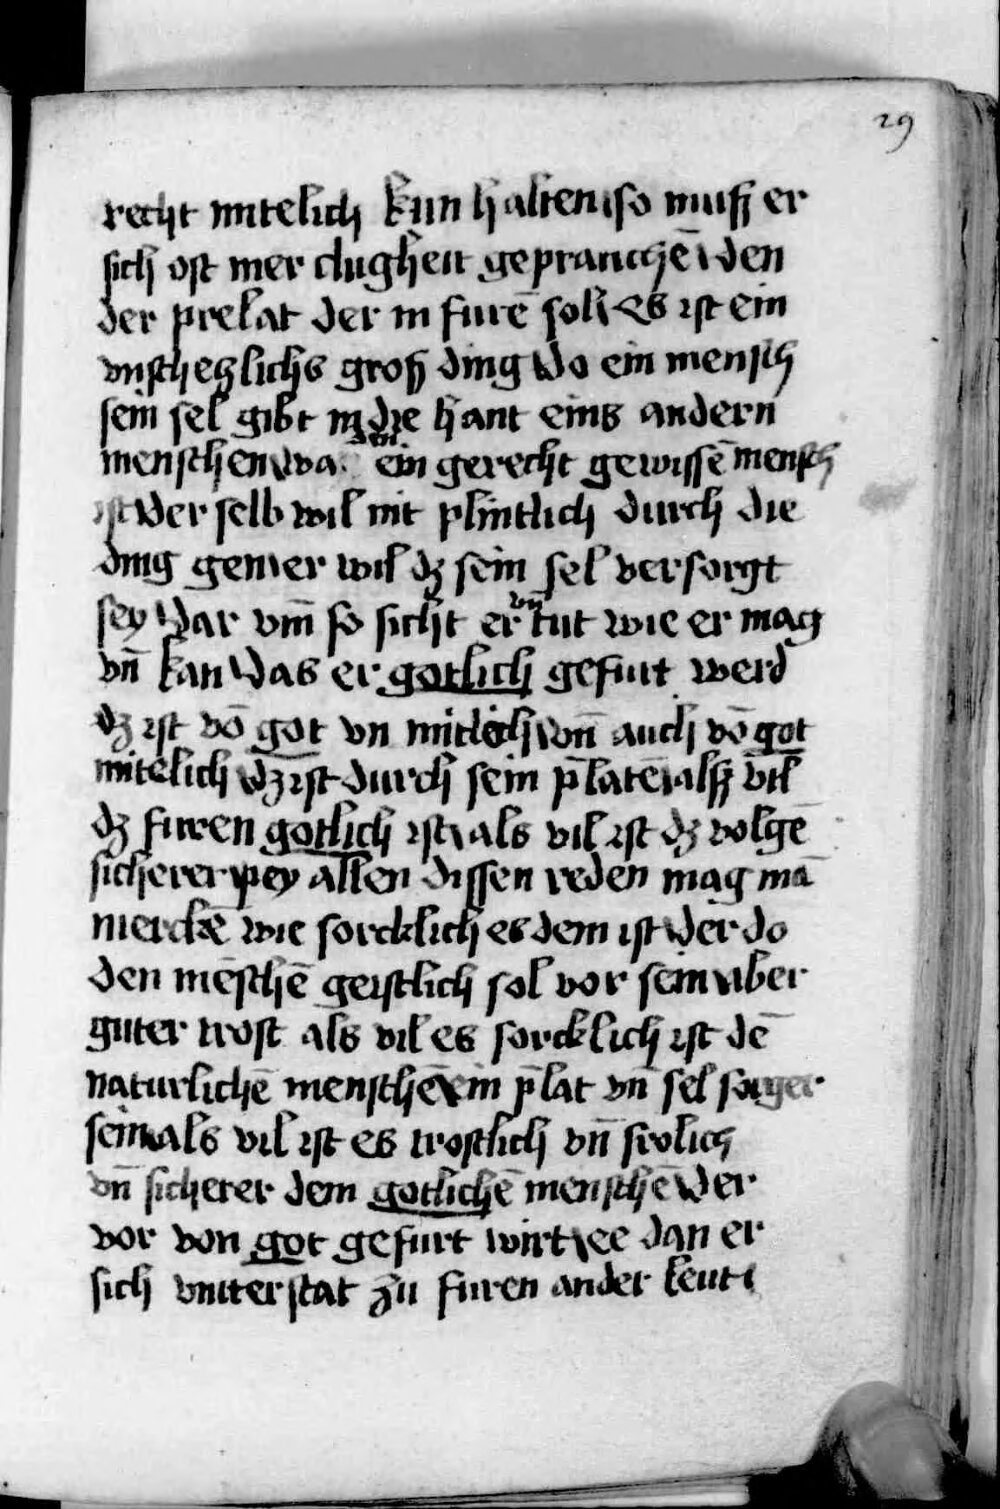 29
recht mitelich kun halten so muß er
sich oft mer clugheit geprauchē Wen
der prelat der in furē soll Es ist ein
vnschetzlichs groß ding Wo ein mensch
sein sel gibt in die hant eins andern
menschen wa ein gerecht gewissē mensch
ist Der selb wil nit plintlich durch die
ding gen er wil dz sein sel versorgt
sey Dar vm̄ so sicht er vn̄ tut wie er mag
vn̄ kan Das er gotlich gefurt werd
dz ist vō got vn mitelich von̄ auch vō got
mitelich Dz ist durch sein p̄latē alß vil
dz furen gotlich ist als vil ist dz volgē
sicherer pey allen dissen reden mag mā
merckē wie sorcklich es dem ist Der do
den mēschē geistlich sol vor sein aber
guter trost als vil es sorcklich ist dē
naturlichē menschē ein p̄lat vn̄ sel sorger
sein als vil ist es trostlich vn̄ frolich
vn̄ sicherer dem gotlichē menschē Der
vor von got gefurt wirt ee dan er
sich vnterstat zu furen ander leut